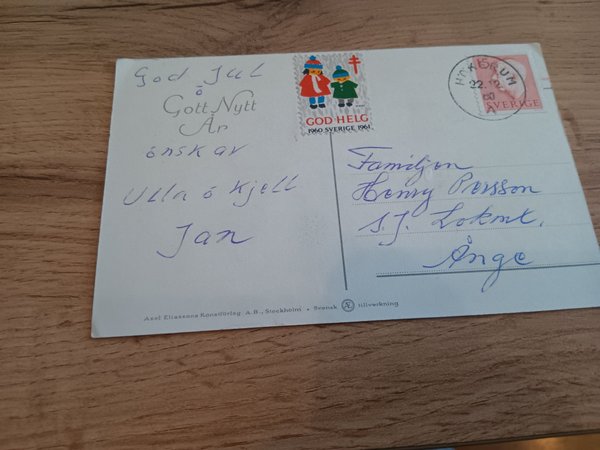 God Jul
å
Gott Nytt
År
önskar
Ulla o Kjell
Jan
GOD HELG
1960 SVERIGE 1961
22.12.60
A
SVERIGE
Familjen
Henry Persson
S.J. Lokmt.
Ånge
Axel Eliassons Konstförlag A.B., Stockholm • Svensk Æ tillverkning